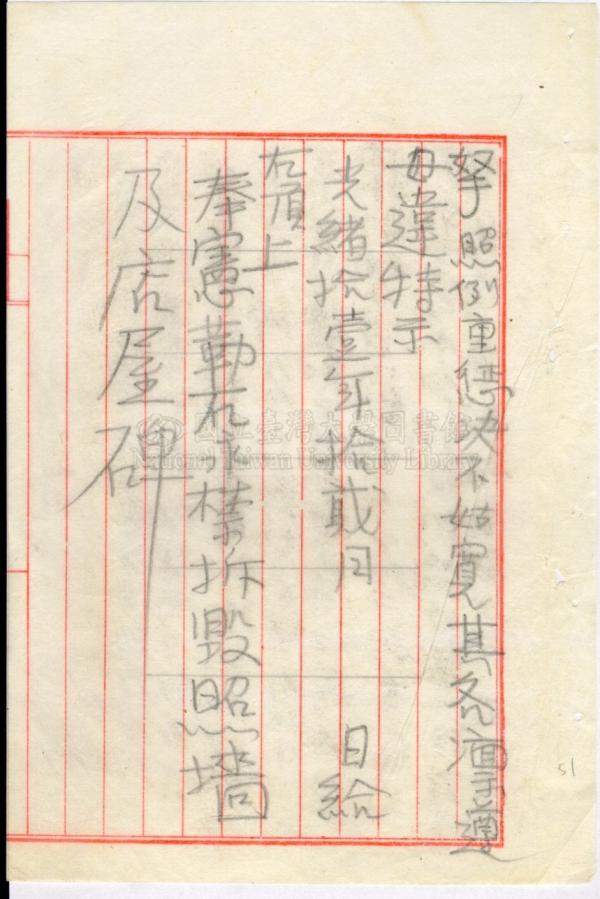 拏照例重懲决不姑寛其各凛遵
毋違特示
光緒拾壹年拾貳月 日給
右頂上
奉憲勒石永禁拆毀照墻
及店屋碑
國立臺灣大學圖書館
National Taiwan University Library
51